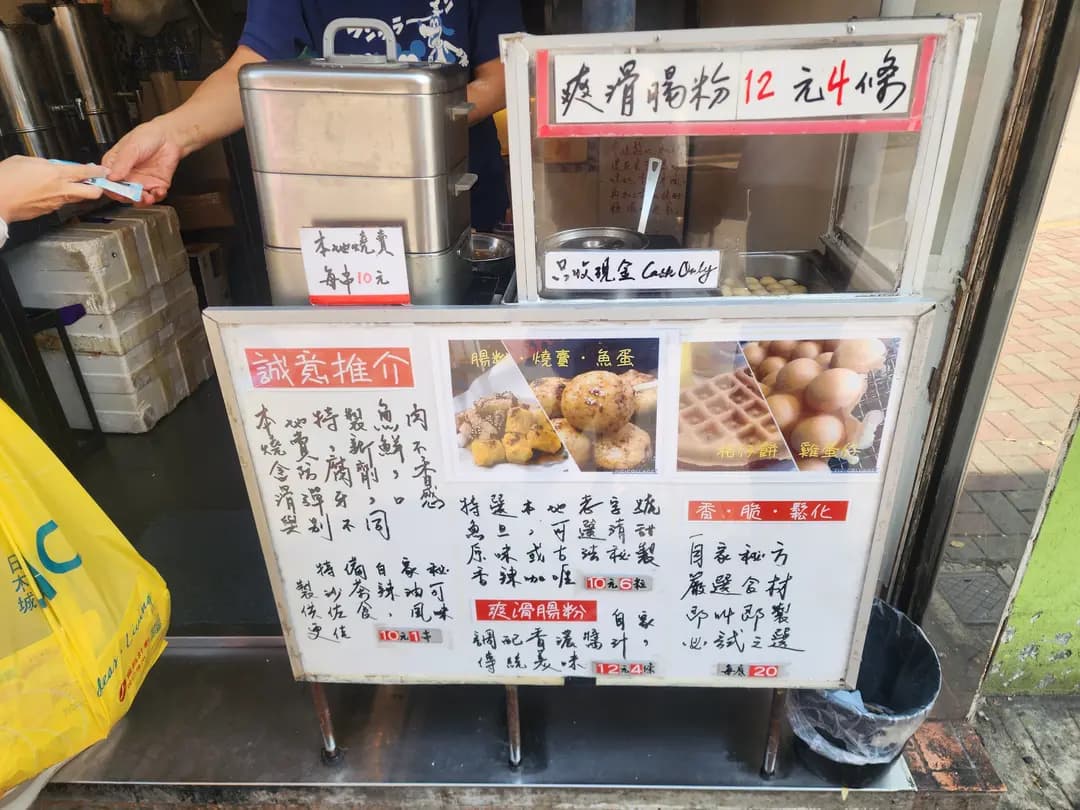 爽滑腸粉12元4條
本地燒賣
每串10元
只收現金 Cash Only
誠意推介
本地特製魚肉
燒賣,新鮮,不
含防腐劑,香
滑彈牙,口感
與別不同
特備自家秘
製沙茶辣油可
供佐食,風味
更佳 10元1串
腸粉·燒賣·魚蛋
特選本地老字號
魚旦,可選清甜
原味或古法秘製
香辣咖喱 10元6粒
爽滑腸粉 自家
調配香濃醬汁,
傳統美味 12元4條
格仔餅 雞蛋仔
香·脆·鬆化
自家秘方
嚴選食材
即叫即製
必試之選
每底 20
日本城
dear living